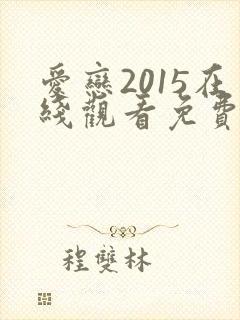 愛戀2015在
綫觀看免費
程雙林